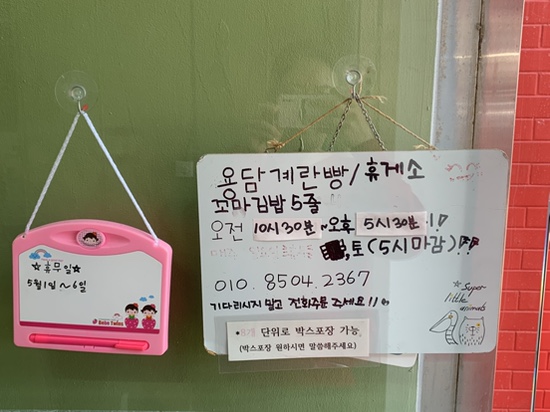 ☆휴무일☆
5월1일~6일
용담계란빵/휴게소
꼬마김밥 5줄
오전 10시30분~오후 5시30분!!
,토(5시마감)!!
010.8504.2367
기다리시지 말고 전화주문 주세요!!
단위로 박스포장 가능
(박스포장 원하시면 말씀해주세요)
☆Super
little
animals